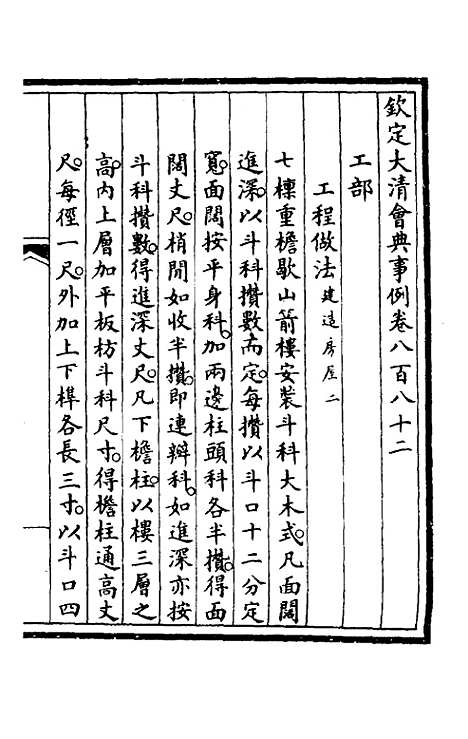 欽定大清會典事例卷八百八十二
工部
工程做法建造房屋二
七檁重檐歇山箭樓安裝斗科大木式。凡面闊
進深。以斗科攢數而定。每攢以斗口十二分定
寬。面闊按平身科。加兩邊柱頭科各半攢。得面
闊丈尺。梢閒如收半攢。即連瓣科。如進深亦按
斗科攢數。得進深丈尺。凡下檐柱。以樓三層之
高。內上層加平板枋斗科尺寸。得檐柱通高丈
尺。每徑一尺。外加上下榫各長三寸。以斗口四